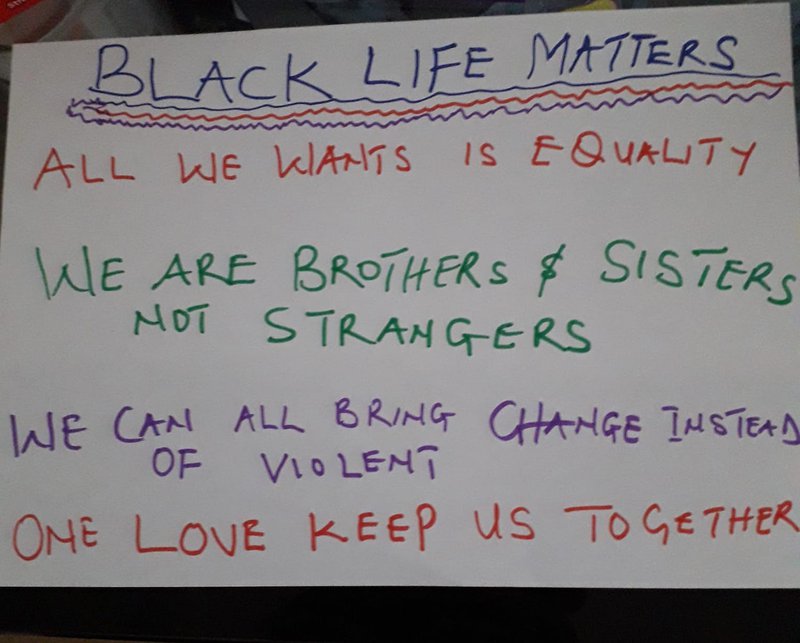 BLACK LIFE MATTERS
ALL WE WANTS IS EQUALITY
WE ARE BROTHERS & SISTERS
NOT STRANGERS
WE CAN ALL BRING CHANGE INSTEAD
OF VIOLENT
ONE LOVE KEEP US TOGETHER